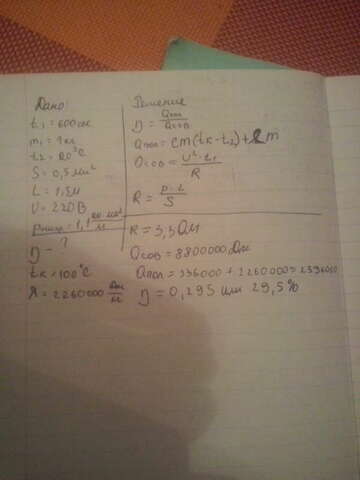 Дано:
t₁ = 600 сек
m₁ = 1 кг
t₂ = 20°C
S = 0,5 мм²
L = 1,5 м
U = 220 В
1,1 Ом·мм²/м
η - ?
tк = 100°C
λ = 2260000 Дж/кг
Решение
η = Qпол/Qсов
Qпол = cm(tк-t₂)+Lm
Qсов = U²·t₁/R
R = p·L/S
R = 3,3 Ом
Qсов = 8800000 Дж
Qпол = 336000 + 2260000 = 2596000
η = 0,295 или 29,5%